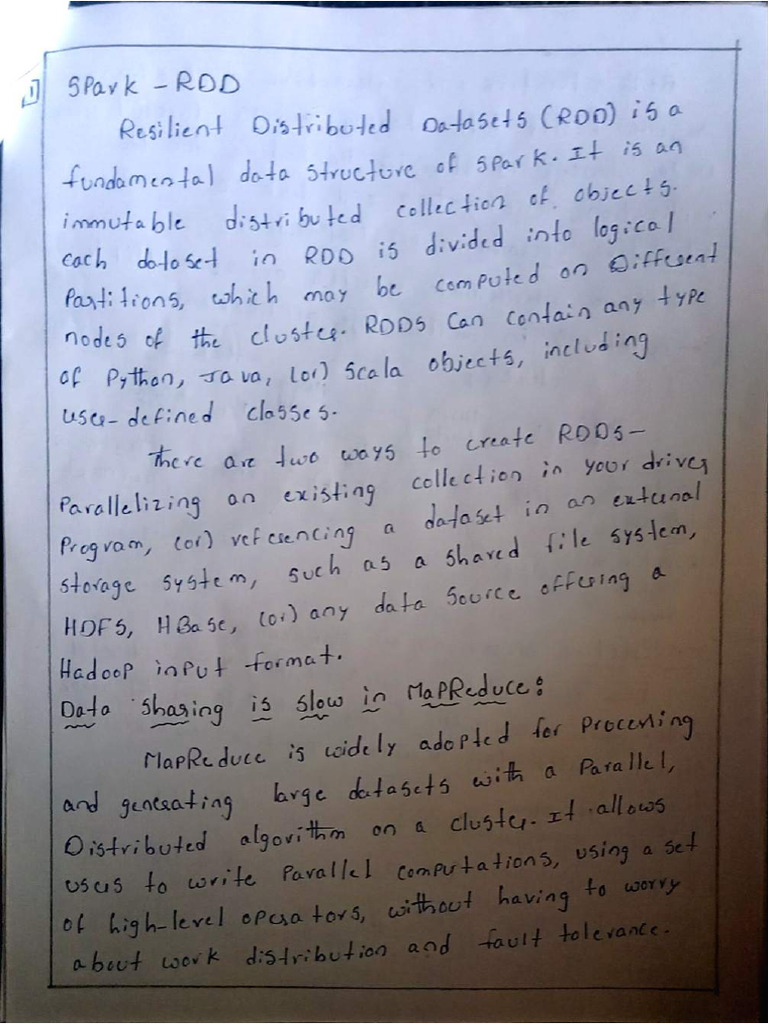 1] Spark - RDD
Resilient Distributed Datasets (RDD) is a
fundamental data structure of Spark. It is an
immutable distributed collection of objects.
each dataset in RDD is divided into logical
Partitions, which may be computed on Different
nodes of the cluster. RDDS Can contain any type
of Python, Java, (or) Scala objects, including
user-defined classes.
There are two ways to create RDDs-
Parallelizing an existing collection in your driver
Program, (or) referencing a dataset in an external
storage system, such as a shared file system,
HDFS, HBase, (or) any data Source offering a
Hadoop input format.
Data Sharing is Slow in MapReduce:
MapReduce is widely adopted for Processing
and generating large datasets with a Parallel,
Distributed algorithm on a cluster. It allows
users to write Parallel Computations, using a set
of high-level operators, without having to worry
about work distribution and fault tolerance.